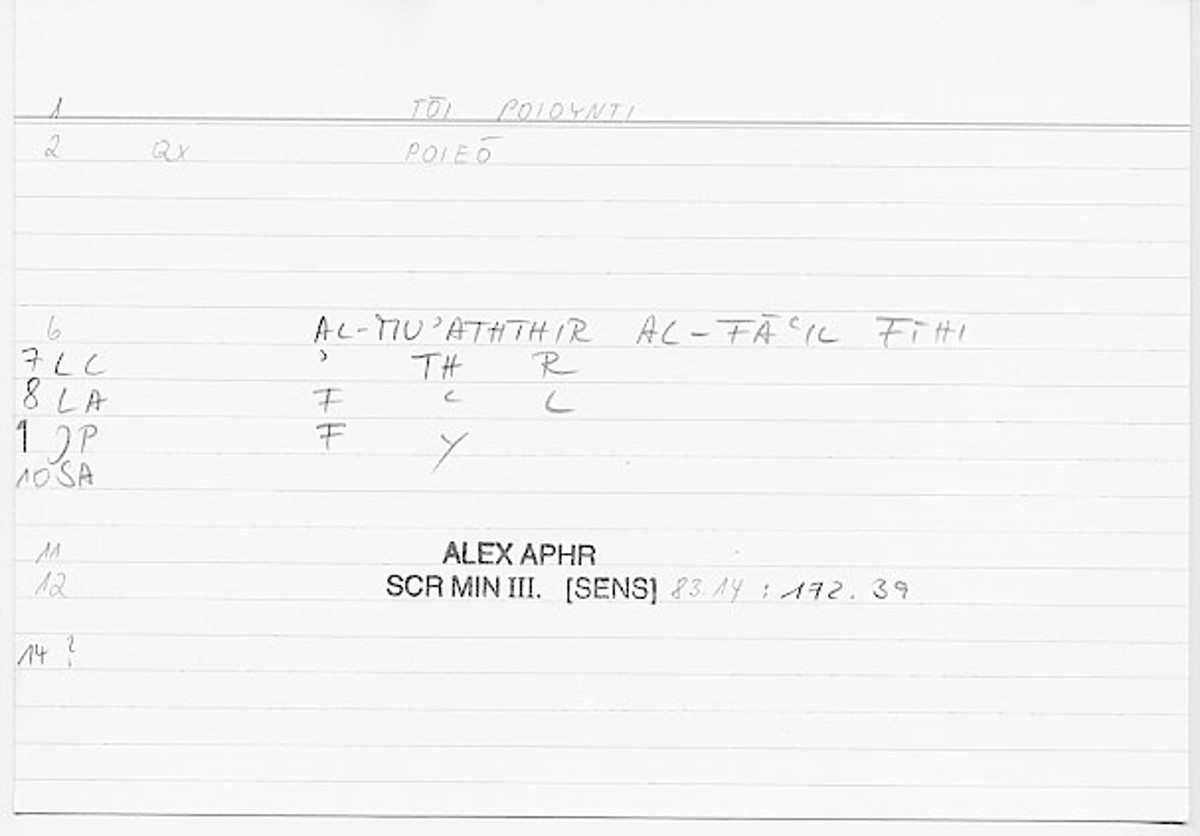 1 TŌI POIOYNTI
2 QX POIEŌ
6 AL-MU'ATHTHIR AL-FĀʿIL FĪHI
7 LC ʾ TH R
8 LA F ʿ L
1 JP F Y
10 SA
11 ALEX APHR
12 SCR MIN III. [SENS] 83.14 : 172.39
14 ?